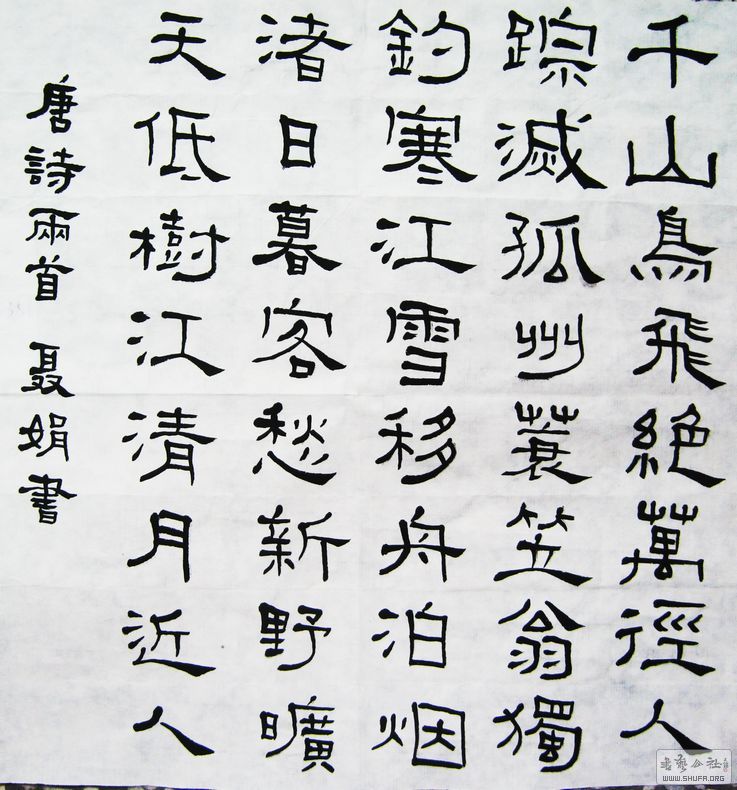 千山鳥飛絶萬徑人
踪滅孤州蓑笠翁獨
釣寒江雪移舟泊烟
渚日暮客愁新野曠
天低樹江清月近人
唐詩兩首 聂娟書
WWW.SHUFA.ORG